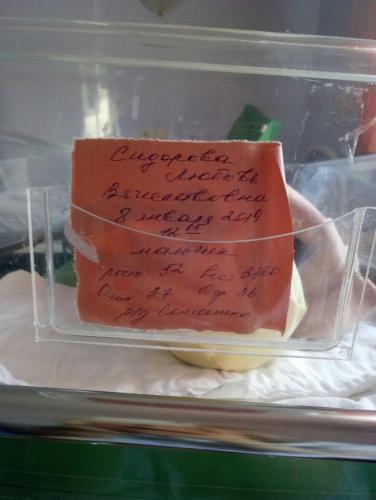 Сидорова
Любовь
Вячеславовна
8 января 2019
12 15
мальчик
рост 52 вес 3720
Огол 37 Огр 36
р/д Семашко